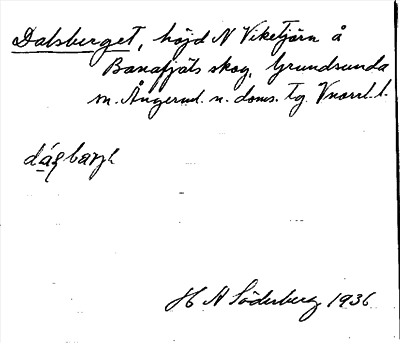 Dalsberget, höjd N Viketjärn å
Banafjäls skog, Grundsunda
sn. Ångerml. n. doms. tg. Vnorrl. l.
H A Söderberg 1936